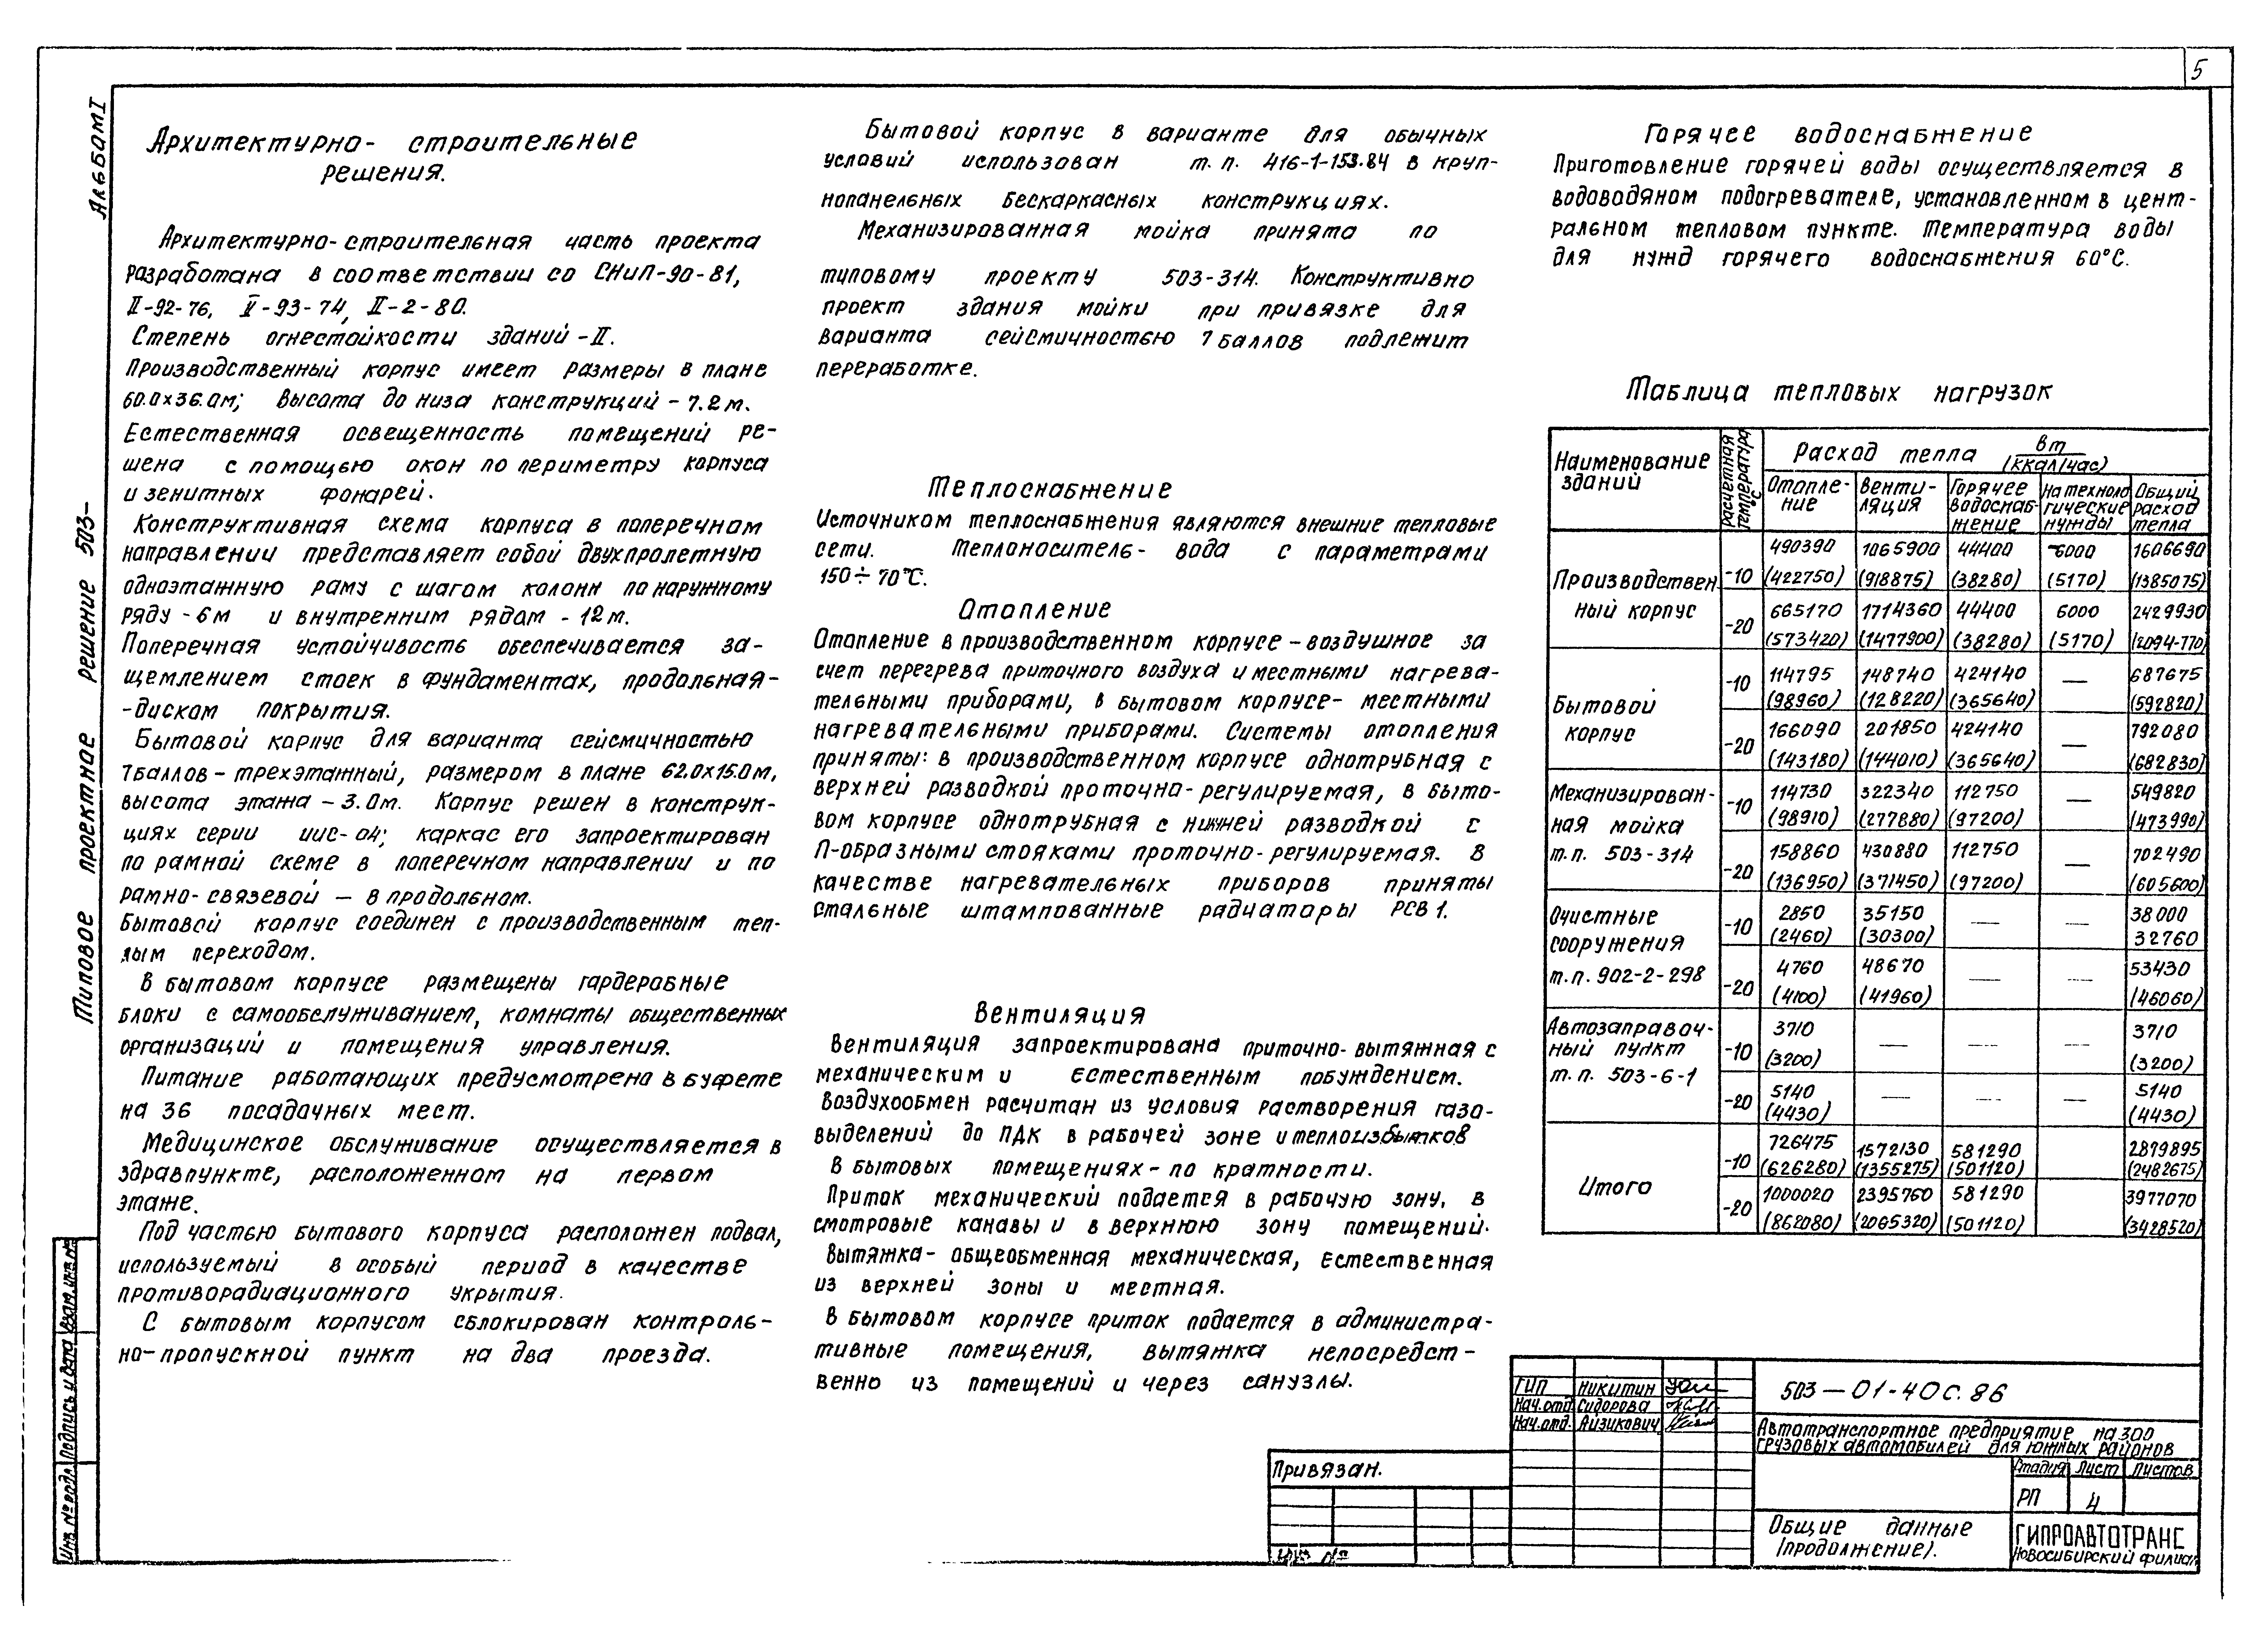 5
Альбом I
Типовое проектное решение 503-
Архитектурно- строительные
решения.
Архитектурно-строительная часть проекта
разработана в соответствии со СНиП-90-81,
II-92-76, II-93-74, II-2-80.
Степень огнестойкости зданий -II.
Производственный корпус имеет размеры в плане
60.0х36.0м; Высота до низа конструкций - 7.2м.
Естественная освещенность помещений ре-
шена с помощью окон по периметру корпуса
и зенитных фонарей.
Конструктивная схема корпуса в поперечном
направлении представляет собой двухпролетную
одноэтажную раму с шагом колонн по наружному
ряду -6м и внутренним рядам - 12м.
Поперечная устойчивость обеспечивается за-
щемлением стоек в фундаментах, продольная-
-диском покрытия.
Бытовой корпус для варианта сейсмичностью
7баллов-трехэтажный, размером в плане 62.0х15.0м,
высота этажа - 3.0м. Корпус решен в конструк-
циях серии ИИС-04; каркас его запроектирован
по рамной схеме в поперечном направлении и по
рамно-связевой - в продольном.
Бытовой корпус соединен с производственным теп-
лым переходом.
В бытовом корпусе размещены гардеробные
блоки с самообслуживанием, комнаты общественных
организаций и помещения управления.
Питание работающих предусмотрено в буфете
на 36 посадочных мест.
Медицинское обслуживание осуществляется в
здравпункте, расположенном на первом
этаже.
Под частью бытового корпуса расположен подвал,
используемый в особый период в качестве
противорадиационного укрытия.
С бытовым корпусом сблокирован контроль-
но-пропускной пункт на два проезда.
Бытовой корпус в варианте для обычных
условий использован т.п. 416-1-153.84 в круп-
нопанельных бескаркасных конструкциях.
Механизированная мойка принята по
типовому проекту 503-314. Конструктивно
проект здания мойки при привязке для
варианта сейсмичностью 7 баллов подлежит
переработке.
Теплоснабжение
Источником теплоснабжения являются внешние тепловые
сети. Теплоноситель- вода с параметрами
150÷70°С.
Отопление
Отопление в производственном корпусе-воздушное за
счет перегрева приточного воздуха и местными нагрева-
тельными приборами, в бытовом корпусе- местными
нагревательными приборами. Системы отопления
приняты: в производственном корпусе однотрубная с
верхней разводкой проточно-регулируемая, в быто-
вом корпусе однотрубная с нижней разводкой с
П-образными стояками проточно-регулируемая. В
качестве нагревательных приборов приняты
стальные штампованные радиаторы РСВ1.
Вентиляция
Вентиляция запроектирована приточно-вытяжная с
механическим и естественным побуждением.
Воздухообмен расчитан из условия растворения газо-
выделений до ПДК в рабочей зоне и теплоизбытков
В бытовых помещениях-по кратности.
Приток механический подается в рабочую зону, в
смотровые канавы и в верхнюю зону помещений.
Вытяжка-общеобменная механическая, естественная
из верхней зоны и местная.
В бытовом корпусе приток подается в администра-
тивные помещения, вытяжка непосредст-
венно из помещений и через санузлы.
Горячее водоснабжение
Приготовление горячей воды осуществляется в
водоводяном подогревателе, установленном в цент-
ральном тепловом пункте. Температура воды
для нужд горячего водоснабжения 60°С.
Таблица тепловых нагрузок
Наименование зданий | Расчетная температура °С | Расход тепла вт/(ккал/час)
Отопле-ние | Венти-ляция | Горячее водоснаб-жение | На техноло гические нужды | Общий расход тепла
Производствен ный корпус | -10 | 490390 | 1065900 | 44400 | 6000 | 1606690
(422750) | (918875) | (38280) | (5170) | (1385075)
-20 | 665170 | 1714360 | 44400 | 6000 | 2429930
(573420) | (1477900) | (38280) | (5170) | (2094770)
Бытовой корпус | -10 | 114795 | 148740 | 424140 | — | 687675
(98960) | (128220) | (365640) | (592820)
-20 | 166090 | 201850 | 424140 | — | 792080
(143180) | (144010) | (365640) | (682830)
Механизирован-ная мойка т.п. 503-314 | -10 | 114730 | 322340 | 112750 | — | 549820
(98910) | (277880) | (97200) | (473990)
-20 | 158860 | 430880 | 112750 | — | 702490
(136950) | (371450) | (97200) | (605600)
Очистные сооружения т.п. 902-2-298 | -10 | 2850 | 35150 | — | — | 38000
(2460) | (30300) | 32760
-20 | 4760 | 48670 | — | — | 53430
(4100) | (41960) | (46060)
Автозаправоч-ный пункт т.п. 503-6-1 | -10 | 3710 | — | — | — | 3710
(3200) | (3200)
-20 | 5140 | — | — | — | 5140
(4430) | (4430)
Итого | -10 | 726475 | 1572130 | 581290 | 2879895
(626280) | (1355275) | (501120) | (2482675)
-20 | 1000020 | 2395760 | 581290 | 3977070
(862080) | (2065320) | (501120) | (3428520)
ГИП Никитин
Нач.отд Сидорова
Нач.отд. Айзикович
Привязан.
Инв №
503-01-40с.86
Автотранспортное предприятие на 300
грузовых автомобилей для южных районов
Стадия Лист Листов
РП 4
Общие данные
(продолжение).
ГИПРОАВТОТРАНС
Новосибирский филиал
Инв № подл. Подпись и дата Взам. инв. №